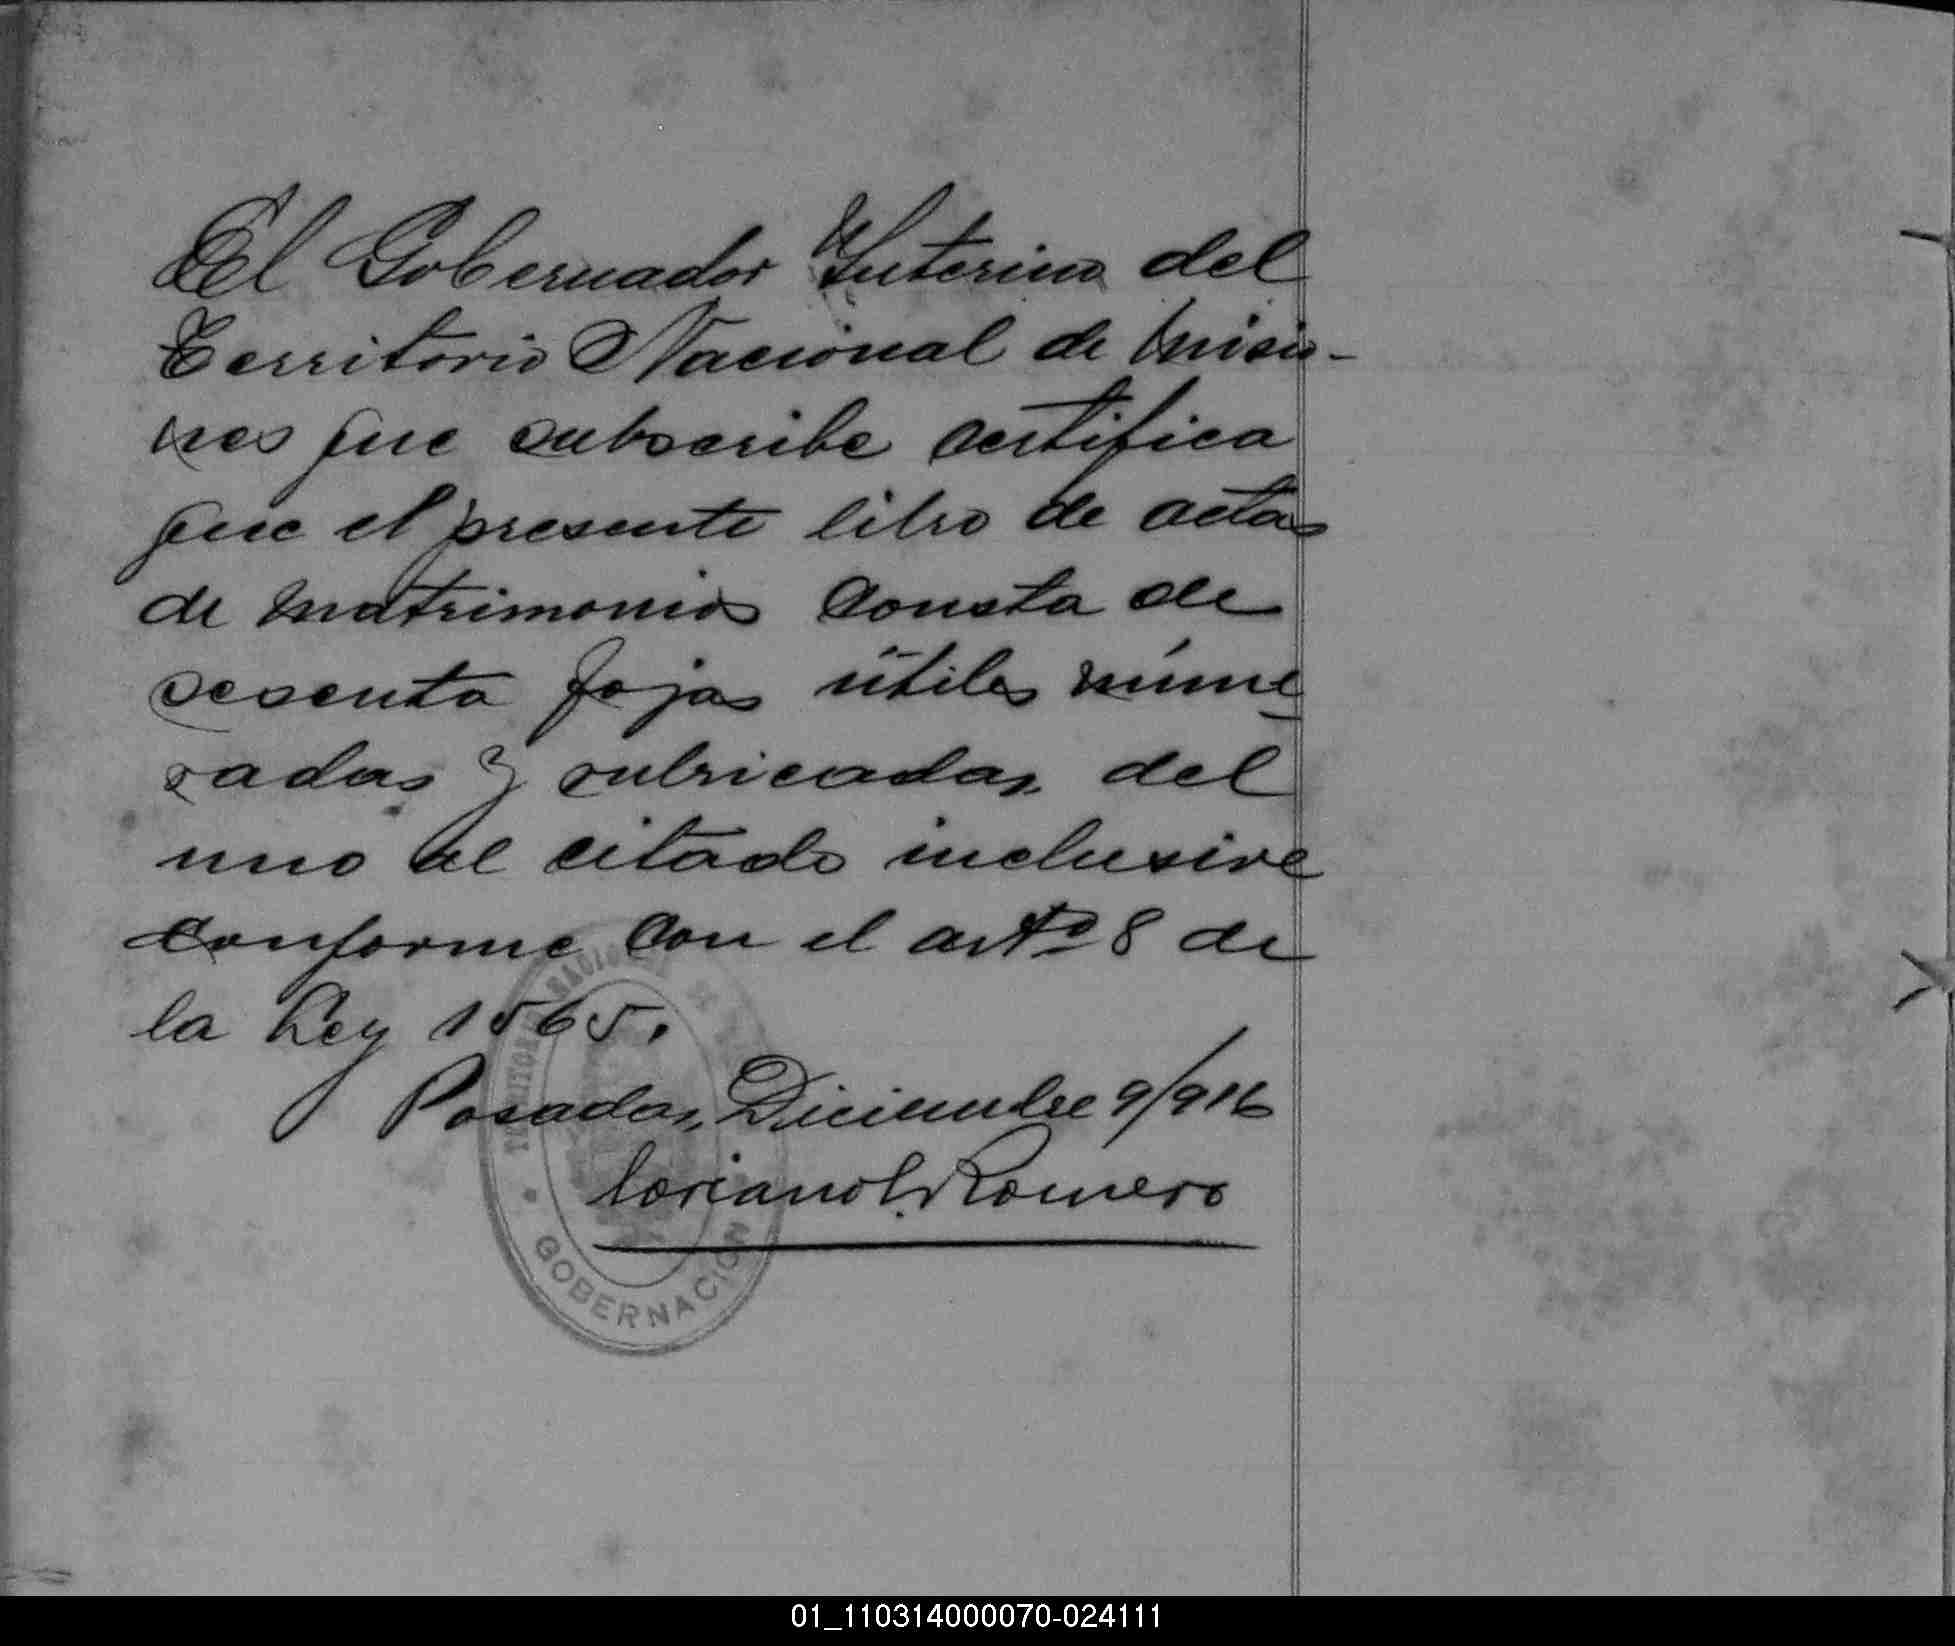 El Gobernador Interino del
Territorio Nacional de Misio-
nes que subscribe certifica
que el presente libro de actas
de matrimonios consta de
sesenta fojas útiles núme
radas y rubricadas, del
uno al citado inclusive
conforme con el artº 8 de
la Ley 1565.
Posadas, Diciembre 9/916
Romero
GOBERNACION
01_110314000070-024111